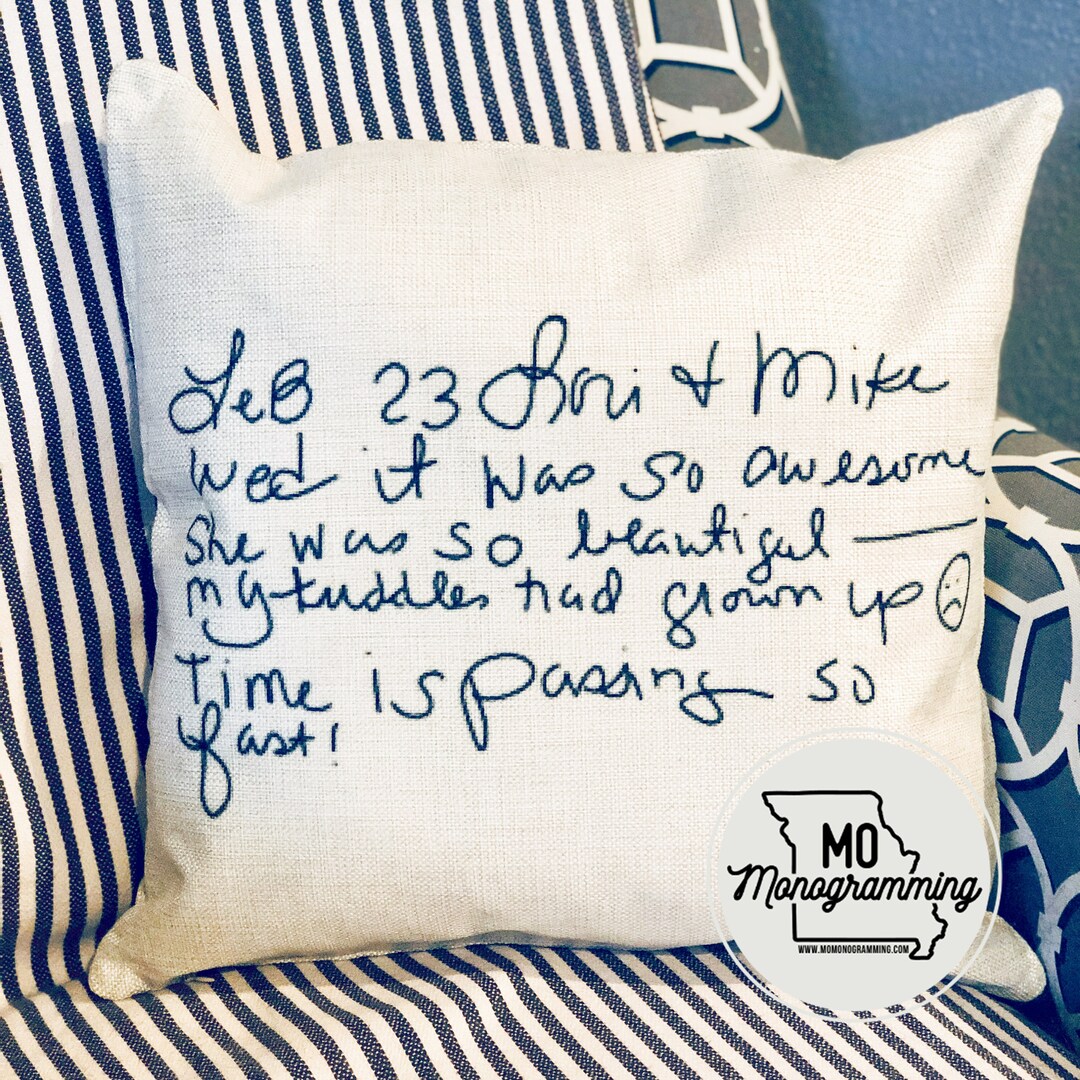 FeB 23 Lori & Mike
wed it was so awesome
She was so beautiful —
my kuddles had grown up ☹
Time is passing so
fast!
MO
Monogramming
WWW.MOMONOGRAMMING.COM